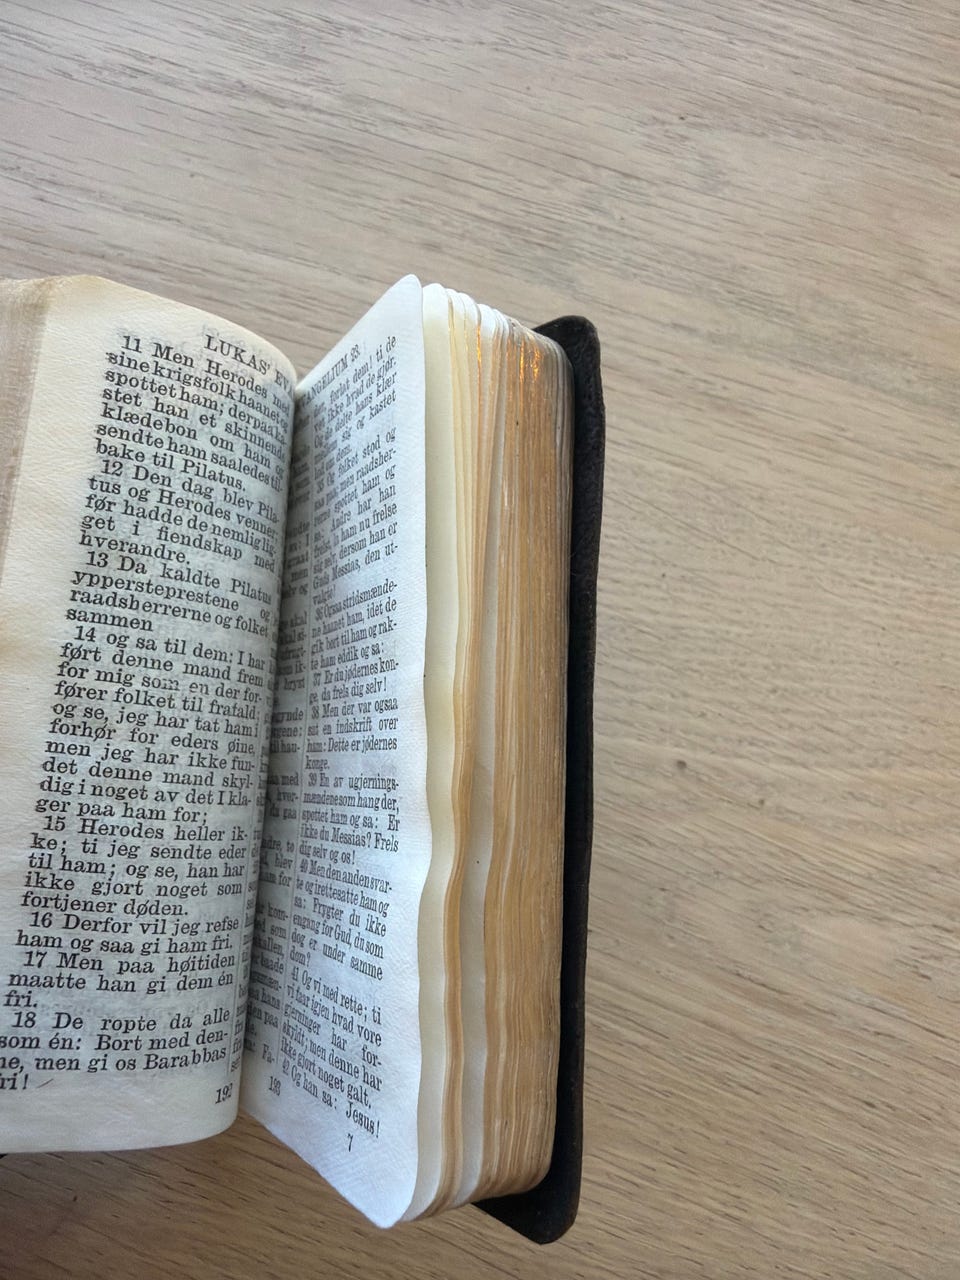 LUKAS' EV
11 Men Herodes med
sine krigsfolk haanet og
spottet ham; derpaa
stet han et skinnende
klædebon om ham og
sendte ham saaledes til-
bake til Pilatus.
12 Den dag blev Pila-
tus og Herodes venner;
før hadde de nemlig lig-
get i fiendskap med
hverandre.
13 Da kaldte Pilatus
ypperstepresterne og
raadsherrerne og folket
sammen
14 og sa til dem: I har
ført denne mand frem
for mig som en der for-
fører folket til frafald;
og se, jeg har tat ham i
forhør for eders øine,
men jeg har ikke fun-
det denne mand skyl-
dig i noget av det I kla-
ger paa ham for;
15 Herodes heller ik-
ke; ti jeg sendte eder
til ham; og se, han har
ikke gjort noget som
fortjener døden.
16 Derfor vil jeg refse
ham og saa gi ham fri.
17 Men paa høitiden
maatte han gi dem én
fri.
18 De ropte da alle
som én: Bort med den-
ne, men gi os Barabbas
fri!
192
ANGELIUM 23.
forlat dem! ti de
ikke hvad de gjør.
Og de delte hans klær
og kastet
folket stod og
saa paa; men raadsher-
rerne spottet ham og
sa: Andre har han
frelst, la ham nu frelse
sig selv, dersom han er
Guds Messias, den ut-
valgte!
36 Ogsaa stridsmænde-
ne haanet ham, idet de
gik bort til ham og rak-
te ham eddik og sa:
37 Er du jødernes kon-
ge, da frels dig selv!
38 Men der var ogsaa
sat en indskrift over
ham: Dette er jødernes
konge.
39 En av ugjernings-
mændene som hang der,
spottet ham og sa: Er
ikke du Messias? Frels
dig selv og os!
40 Men den anden svar-
te og irettesatte ham og
sa: Frygter du ikke
engang for Gud, du som
dog er under samme
dom?
41 Og vi med rette; ti
vi faar igjen hvad vore
gjerninger har for-
skyldt; men denne har
ikke gjort noget galt.
42 Og han sa: Jesus!
193
7